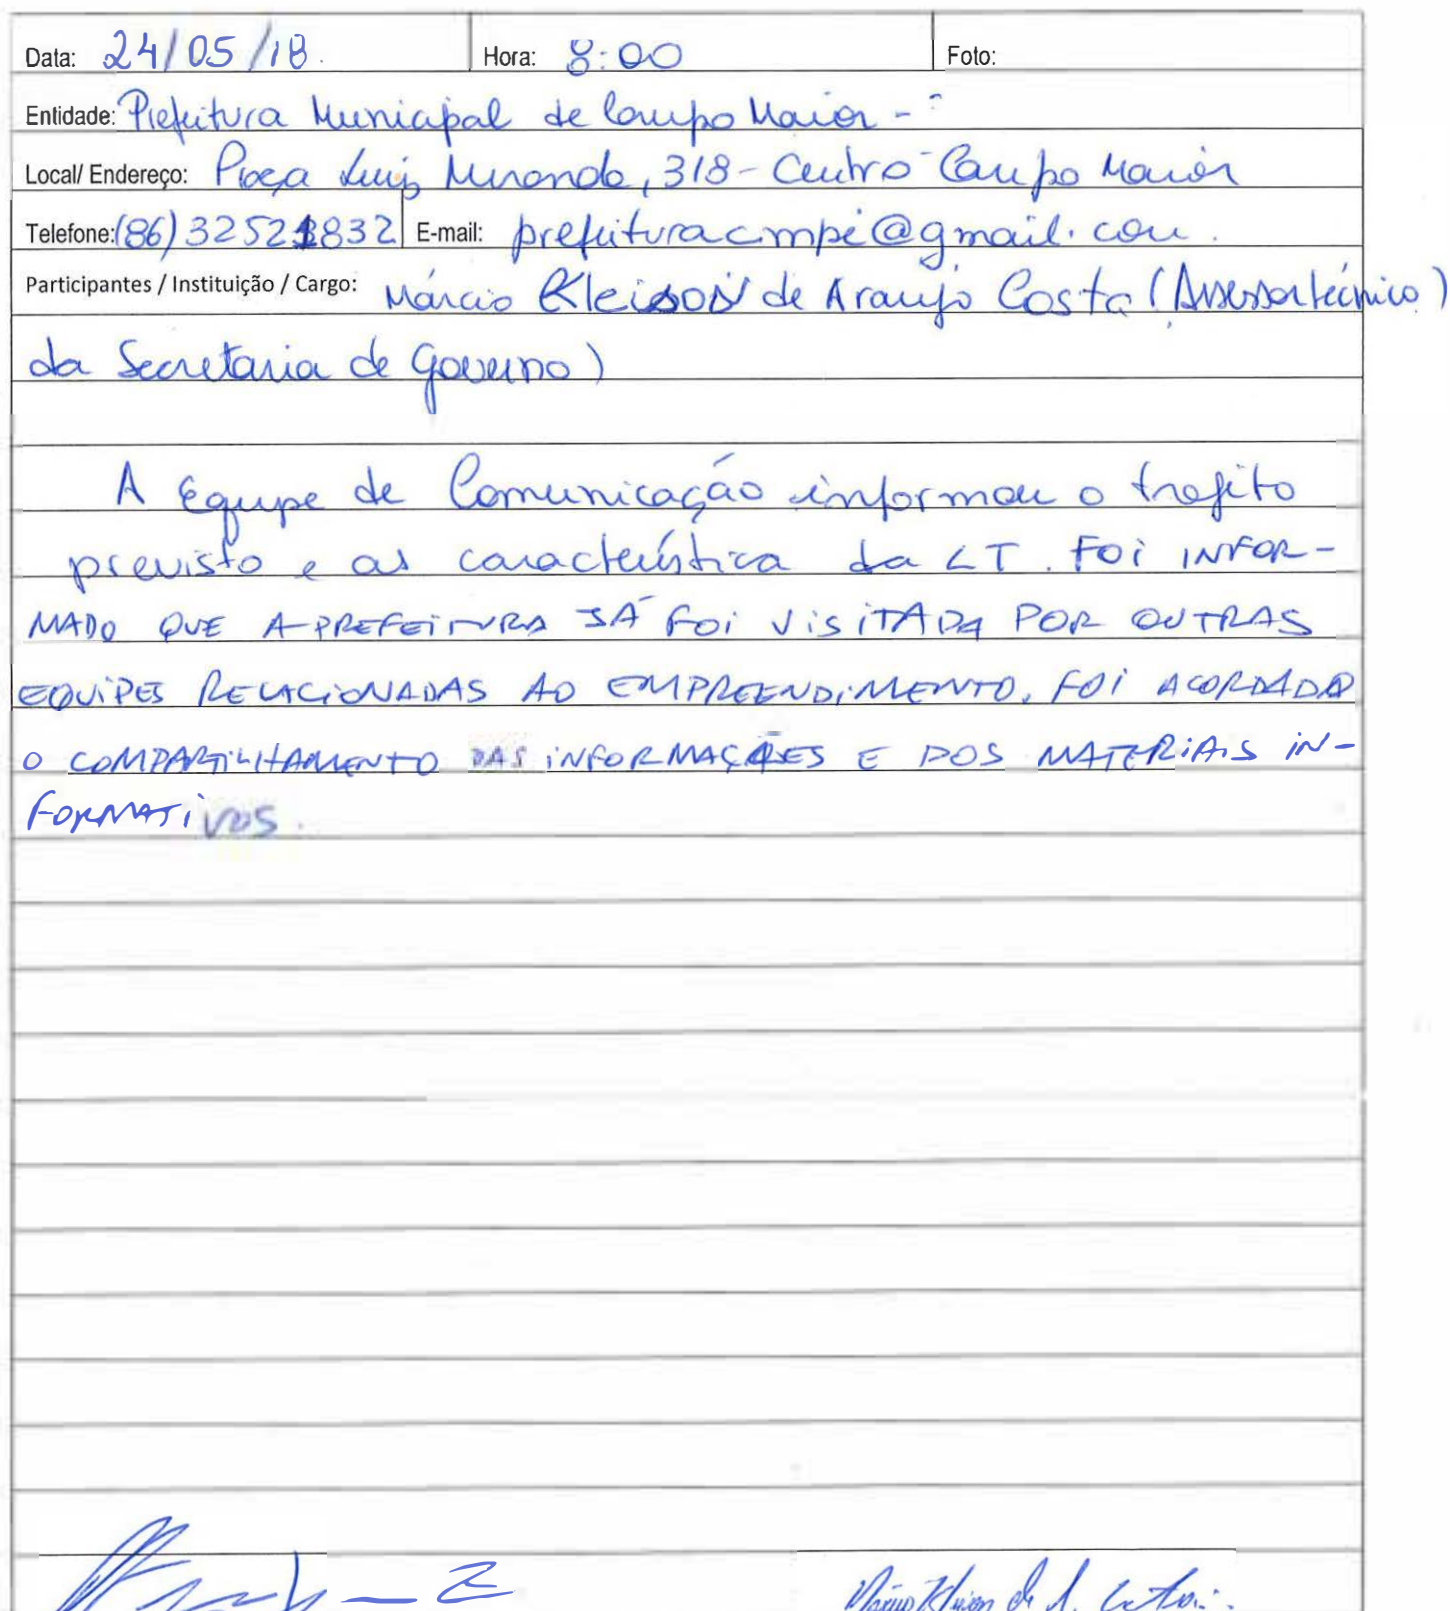 Data: 24/05/18. Hora: 8:00 Foto:
Entidade: Prefeitura Municipal de Campo Maior -
Local/ Endereço: Praça Luis Miranda, 318 - Centro - Campo Maior
Telefone: (86) 32521832 E-mail: prefeituracmpi@gmail.com.
Participantes / Instituição / Cargo: Márcio Kleison de Araujo Costa (Assessor técnico)
da Secretaria de Governo)
A Equipe de Comunicação informou o trajeto
previsto e as característica da LT. FOI INFOR-
MADO QUE A PREFEITURA JÁ FOI VISITADA POR OUTRAS
EQUIPES RELACIONADAS AO EMPREENDIMENTO. FOI ACORDADO
O COMPARTILHAMENTO DAS INFORMAÇÕES E DOS MATERIAIS IN-
FORMATIVOS.